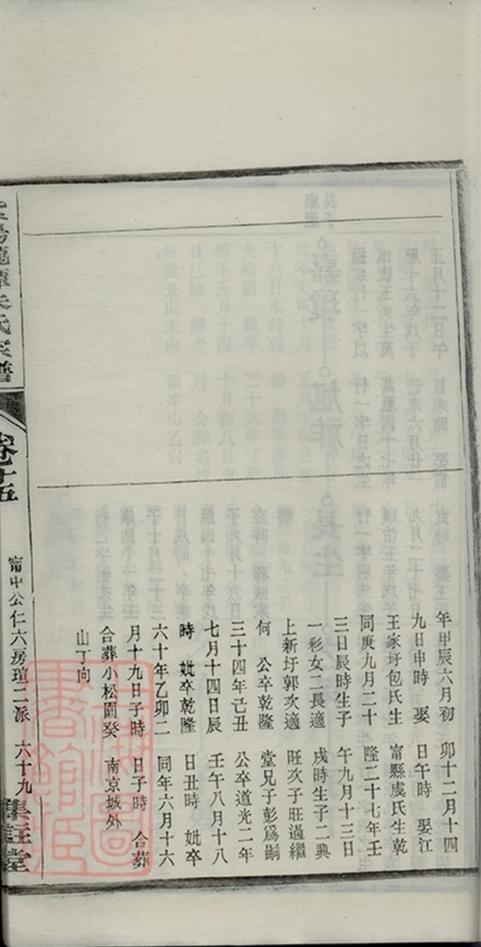 年甲辰六月初
九日申時 娶
王家圩包氏生
同庚九月二十
三日辰時生子
一彩女二長適
上新圩郭次適
何 公卒乾隆
三十四年己丑
七月十四日辰
時 妣卒乾隆
六十年乙卯二
月十九日子時
合葬小松園癸
山丁向
卯十二月十四
日午時 娶江
甯縣虞氏生乾
隆二十七年壬
午九月十三日
戌時生子二興
旺次子旺過繼
堂兄子彭爲嗣
公卒道光二年
壬午八月十八
日丑時 妣卒
同年六月十六
日子時 合葬
南京城外
氏宗譜
卷十五
甯中公仁六房瑄二派 六十九